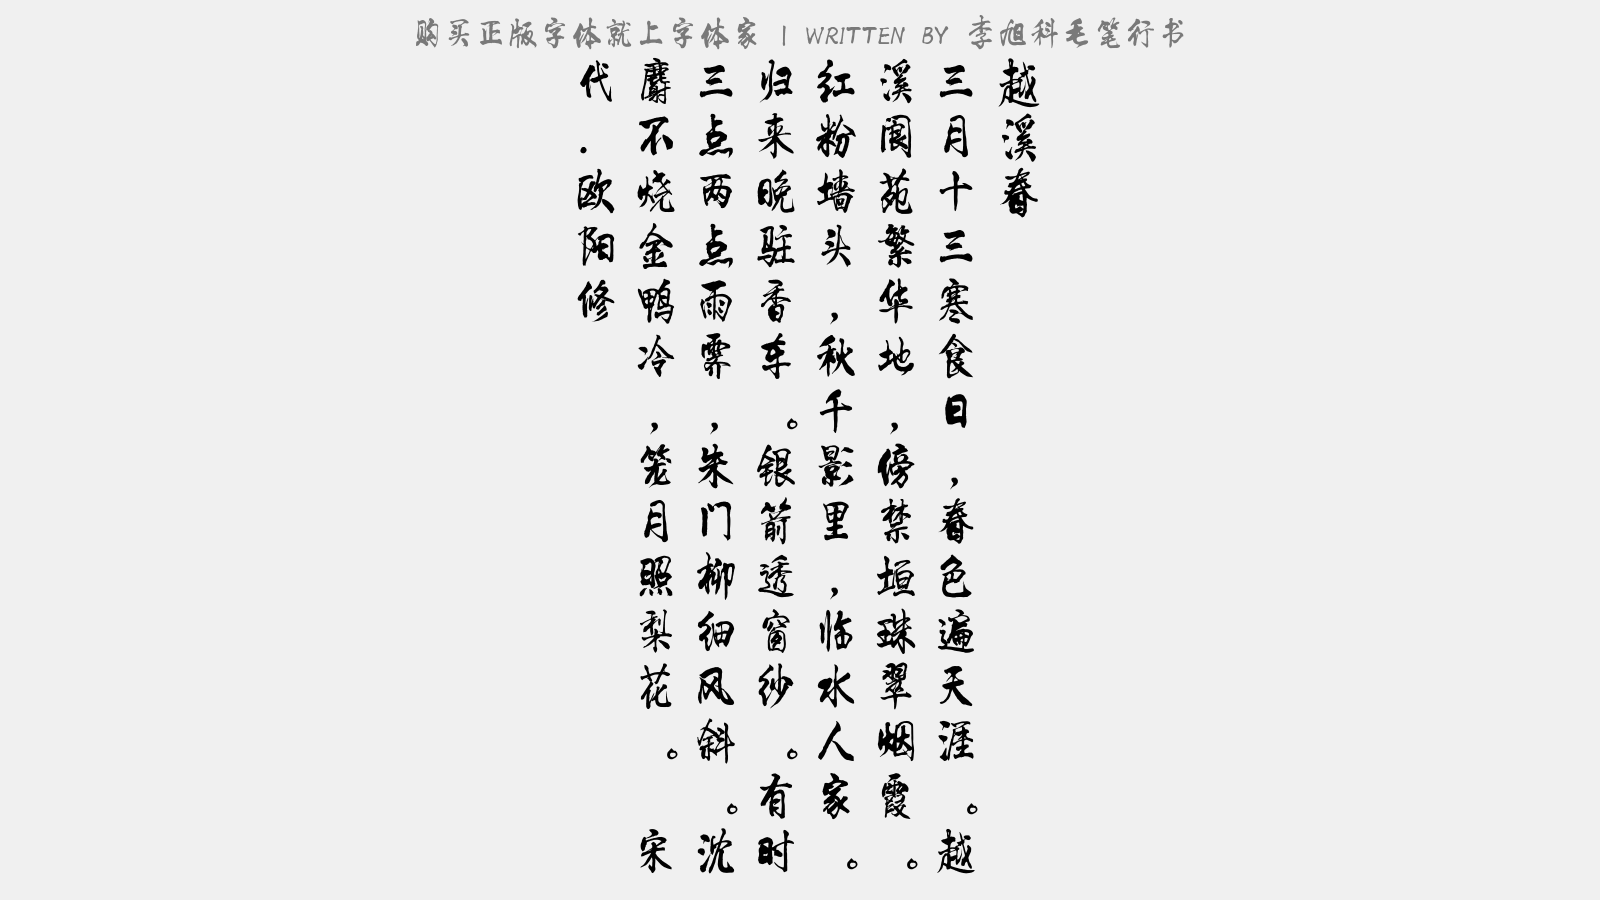 购买正版字体就上字体家 | WRITTEN BY 李旭科毛笔行书
越溪春
三月十三寒食日，春色遍天涯。越
溪阆苑繁华地，傍禁垣珠翠烟霞。
红粉墙头，秋千影里，临水人家。
归来晚驻香车。银箭透窗纱。有时
三点两点雨霁，朱门柳细风斜。沈
麝不烧金鸭冷，笼月照梨花。宋
代.欧阳修